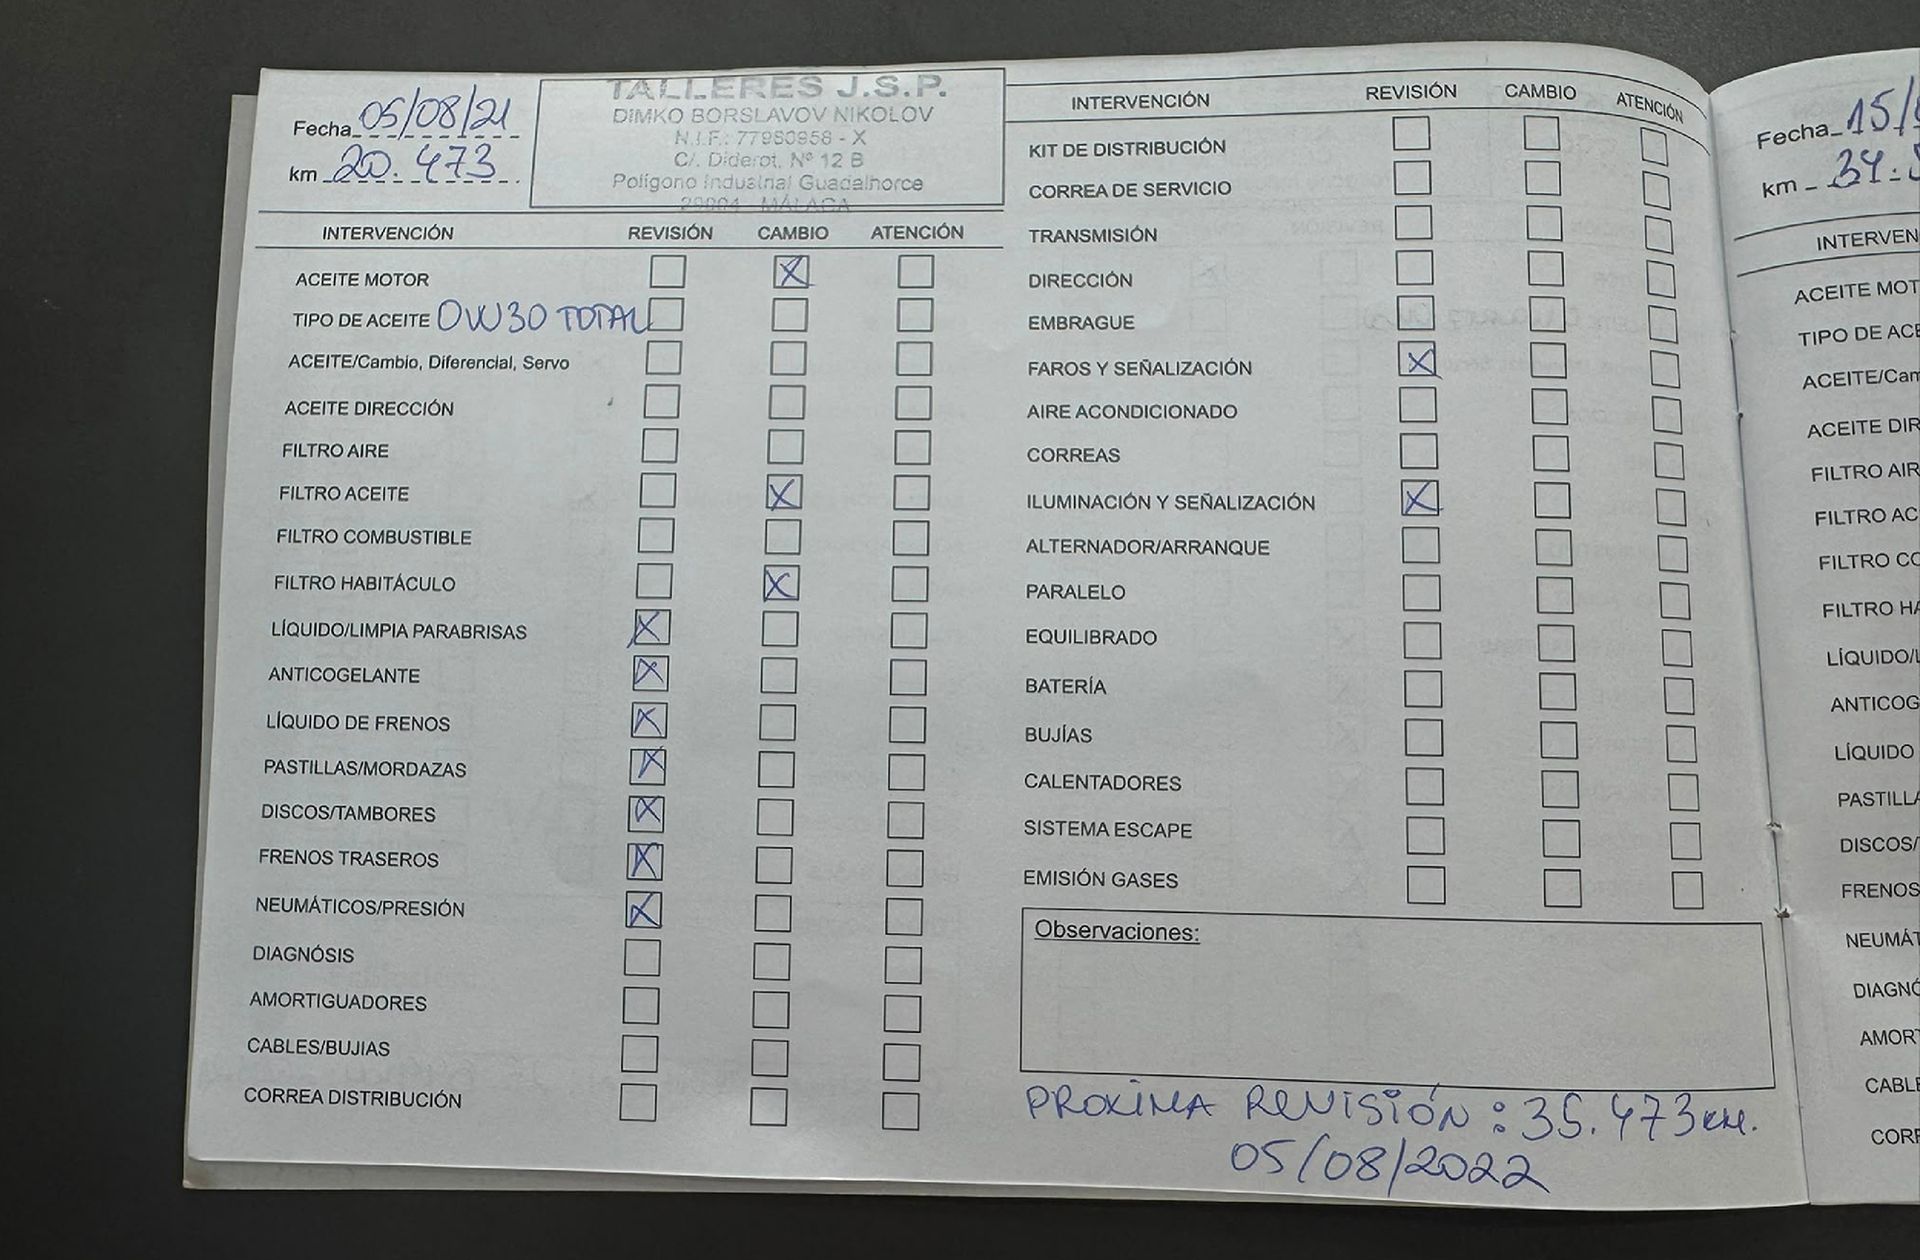 Fecha 05/08/21
km 20.473
TALLERES J.S.P.
DIMKO BORSLAVOV NIKOLOV
N.I.F.: 77980958 - X
C/. Diderot, Nº 12 B
Polígono Industrial Guadalhorce
29004 - MÁLAGA
INTERVENCIÓN REVISIÓN CAMBIO ATENCIÓN
ACEITE MOTOR
TIPO DE ACEITE 0W30 TOTAL
ACEITE/Cambio, Diferencial, Servo
ACEITE DIRECCIÓN
FILTRO AIRE
FILTRO ACEITE
FILTRO COMBUSTIBLE
FILTRO HABITÁCULO
LÍQUIDO/LIMPIA PARABRISAS
ANTICOGELANTE
LÍQUIDO DE FRENOS
PASTILLAS/MORDAZAS
DISCOS/TAMBORES
FRENOS TRASEROS
NEUMÁTICOS/PRESIÓN
DIAGNÓSIS
AMORTIGUADORES
CABLES/BUJIAS
CORREA DISTRIBUCIÓN
INTERVENCIÓN REVISIÓN CAMBIO ATENCIÓN
KIT DE DISTRIBUCIÓN
CORREA DE SERVICIO
TRANSMISIÓN
DIRECCIÓN
EMBRAGUE
FAROS Y SEÑALIZACIÓN
AIRE ACONDICIONADO
CORREAS
ILUMINACIÓN Y SEÑALIZACIÓN
ALTERNADOR/ARRANQUE
PARALELO
EQUILIBRADO
BATERÍA
BUJÍAS
CALENTADORES
SISTEMA ESCAPE
EMISIÓN GASES
Observaciones:
PROXIMA REVISIÓN: 35.473 KM.
05/08/2022
Fecha 15/
km 34.
INTERVEN
ACEITE MOT
TIPO DE ACE
ACEITE/Cam
ACEITE DIR
FILTRO AIR
FILTRO AC
FILTRO CO
FILTRO HA
LÍQUIDO/L
ANTICOG
LÍQUIDO
PASTILLA
DISCOS/
FRENOS
NEUMÁT
DIAGNÓ
AMORT
CABLE
CORR